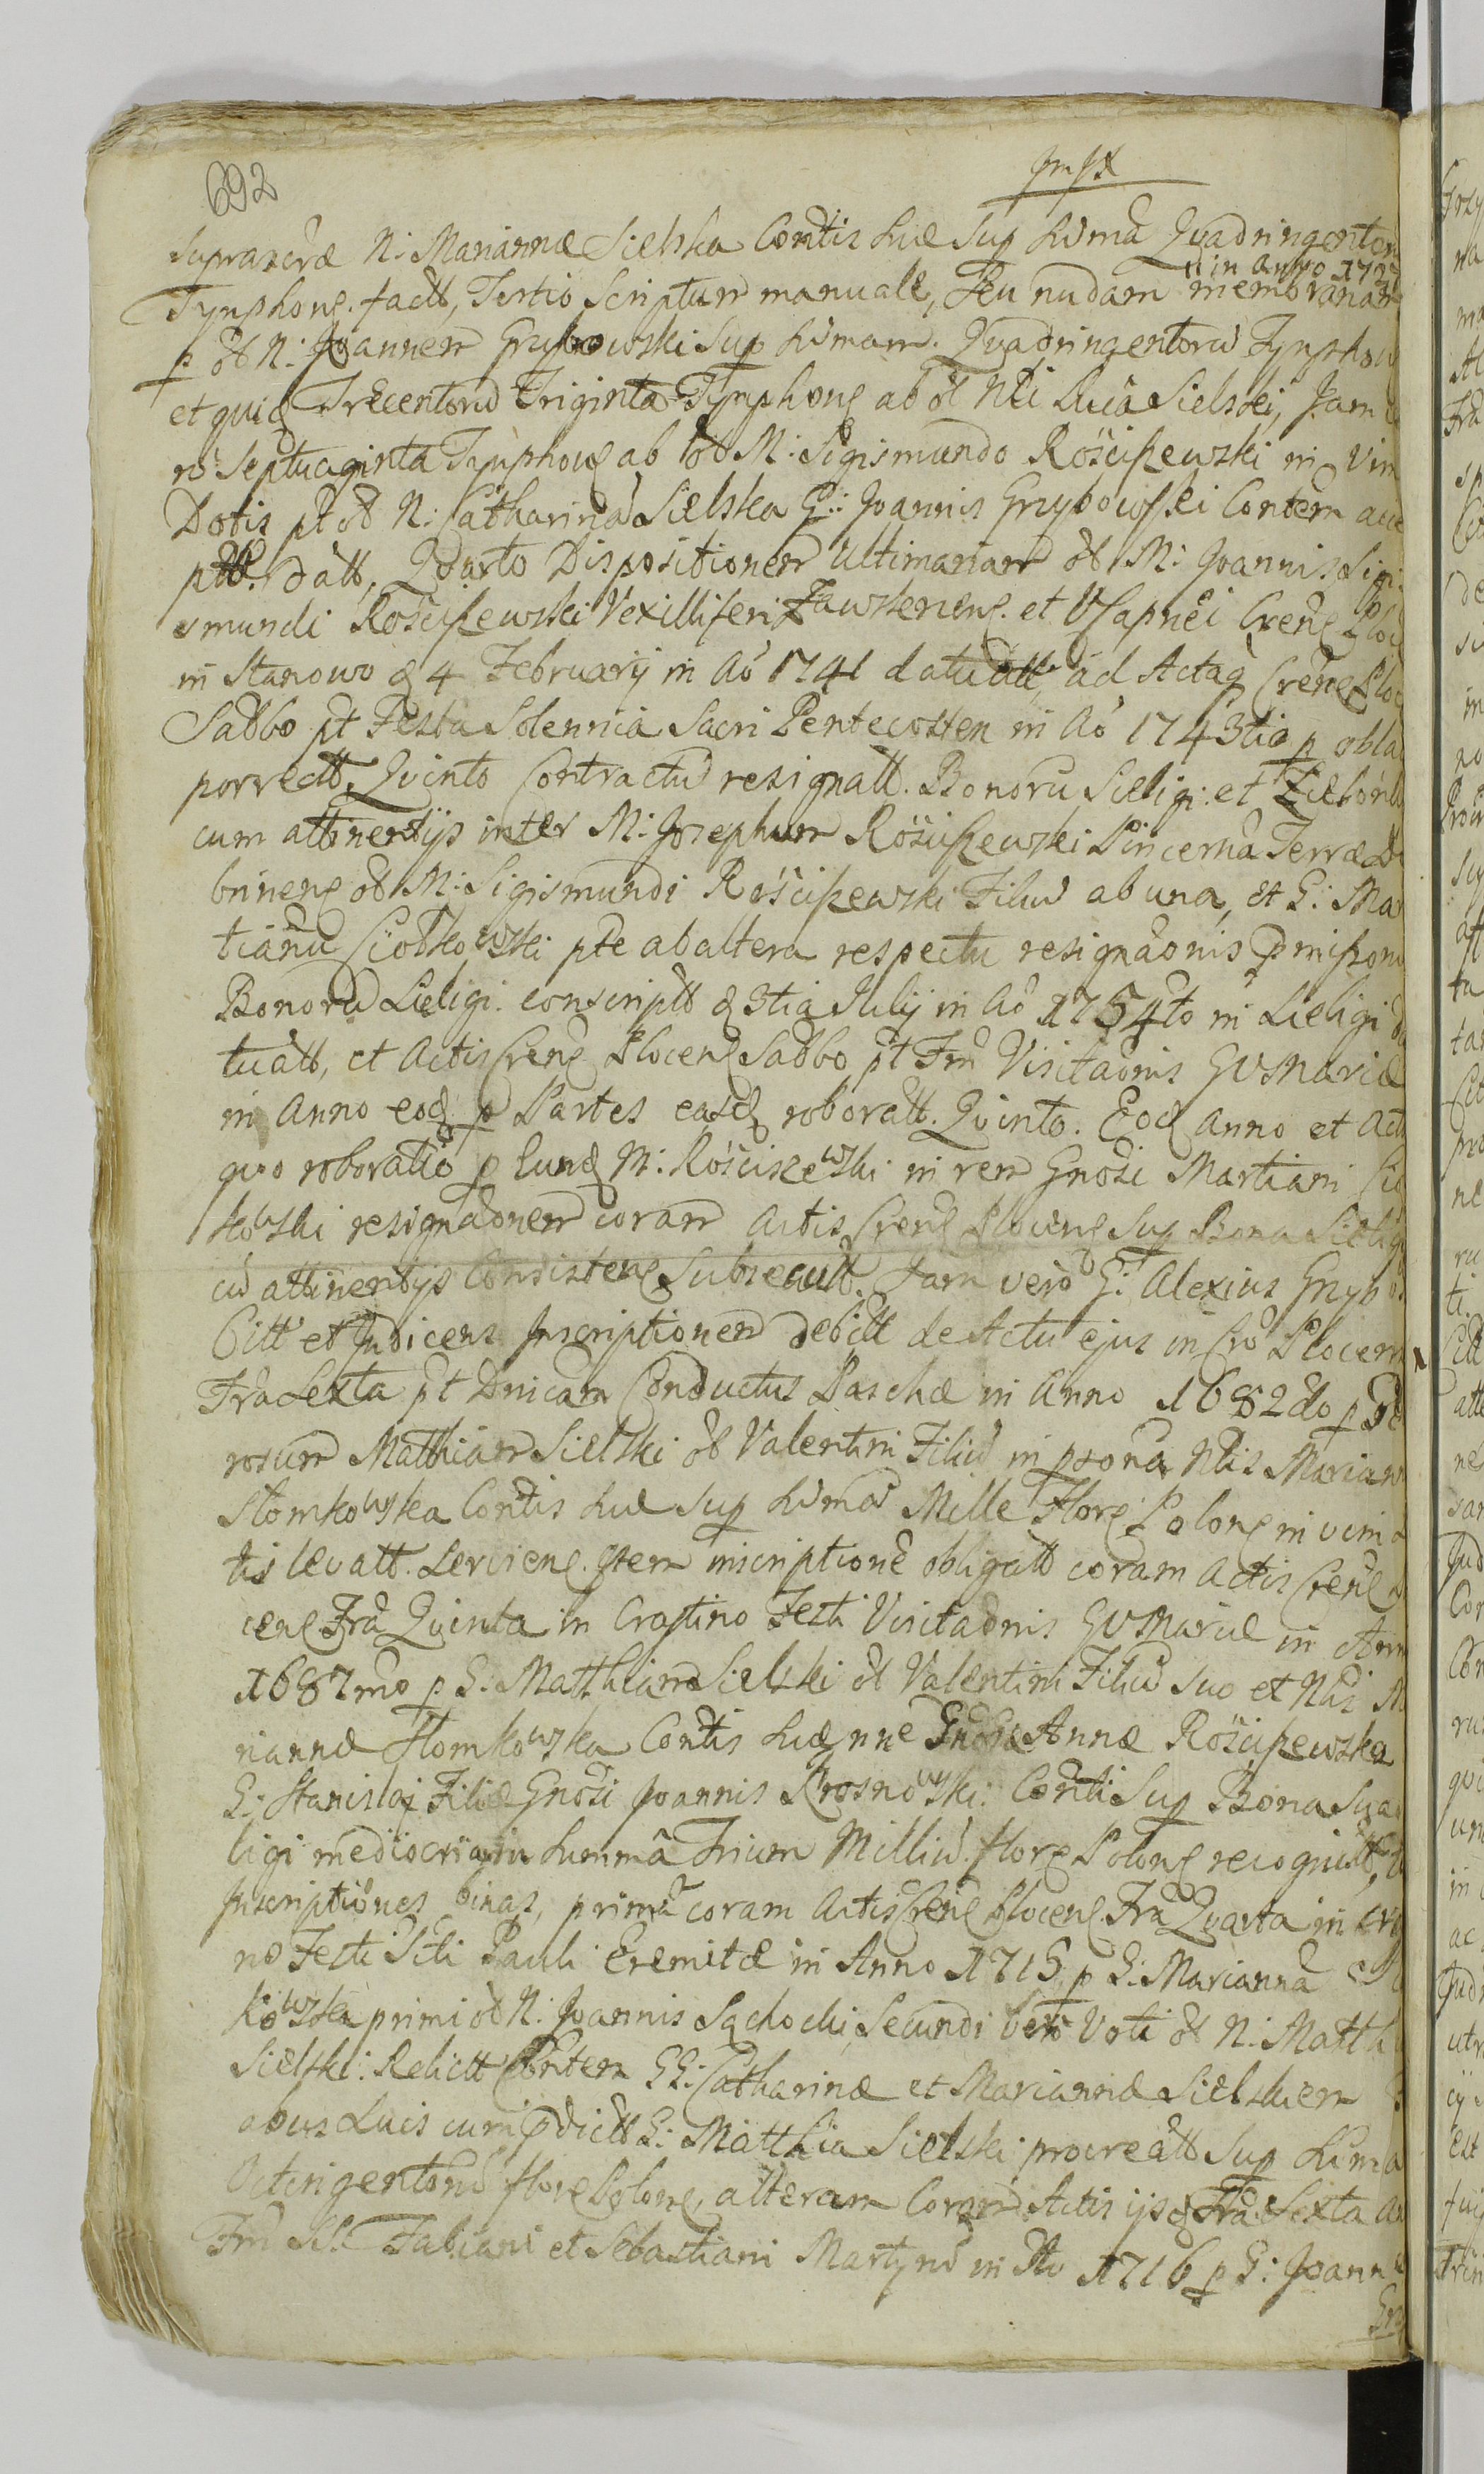 692
suprascræ N: Mariannæ Sielska Contis suæ sup sumã Quadringenter
Tynphone. factt, Tertio Scripturã manuale, seu nudam membranam
in anno 17
p ol N: Joannem Grzybowski sup sumam. Quadringentorũ Tynphon
et quidq Trecentorũ Triginta Tynphone ab ol Nli Luca Sielski, Jam
ro Septuaginta Tynphone ab ol M: Sigismundo Rościszewski in vim
Dotis pt ol N: Catharinã Sielska G: Joannis Grzybowski Contem
ptt. datt, Quarto Dispositionem ultimariam ol M: Joannis Sigi
smundi Rościszewski Vexilliferi Zawskrenens. et VCapnei Crens Ploc
in Stanowo d 4 February in Ao 1741 datuatt, ad Actaq Crens Ploc
Sabbo pt Festa Solennia Sacri Pentecosten in Ao 1743tio p obla
porrectt, Quinto Contractũ resignatt. Bonorũ Sieligi et
cum attinentijs inter M: Josephum Rościszewski Pincernã Terræ Do
brinens ol M: Sigismundi Rościszewski Filiũ ab una, et G: Mar
tianũ Ciołkowski pte ab altera respectu resignaonis pmissoru
Bonorũ Sieligi. conscriptt d 3tia July in Ao 1754to in Sieligi
tuatt, et Actis Crens Plocens Sabbo pt Frm Visitaonis GVMariæ
in Anno eodq p Partes easdq roboratt. Quinto. Eodq anno et Actu
quo roboratio p Eundq M: Rościszewski in rem Gnosi Martiani Cio
kowski resignaonem coram Actis Crens Plocens sup Bona Sielig
cũ attinentijs Consistens Subsecutt. Jam vero G: Alexius Grzybo
Citt et Judicens Inscriptionem debitt de Actu ejus in Cro Plocen
Fra Sexta pt Dnicam Conductus Paschæ in Anno 1682do p Ge
rosum Matthiam Sielski ol Valentini Filiũ in psona Nlis Marian
Słomkowska Contis suæ sup sumã Mille Flore Polone in veni
tis levatt. Serviens. Item inscriptione obligatt coram Actis Crens
cens Fra Quinta in Crastino Festi Visitaonis GVMariæ in Ann
1687mo p G: Matthiam Sielski ol Valentini Filiũ suo et Nlis M
riannæ Słomkowska Contis suæ nne Gnosæ Annæ Rościszewska
G: Stanislai Filiæ Gnosi Joannis Krosnowski Conti sup Bona Sua
ligi mediocria in Summã Trium Milliũ flore Polone recognitt,
Inscriptiones binas, primã coram Actis Crens Plocens. Fra Quarta in cra
no Festi Scti Pauli Eremitæ in Anno 1715 p G: Mariannã
kowska primi ol N: Joannis Sąchocki, Secundi vero Voti ol N: Matth
Sielski. Relictt Contem GG: Catharinæ et Mariannæ Sielskiem
abus suis cum pdictt G: Matthia Sielski procreatt sup suma
Octingentorũ flore Polone, alteram Coram Actis ijsdq Fra Sexta
Frm SS. Fabiani et Sebastiani Martyrũ in Ao 1716 p G: Joann